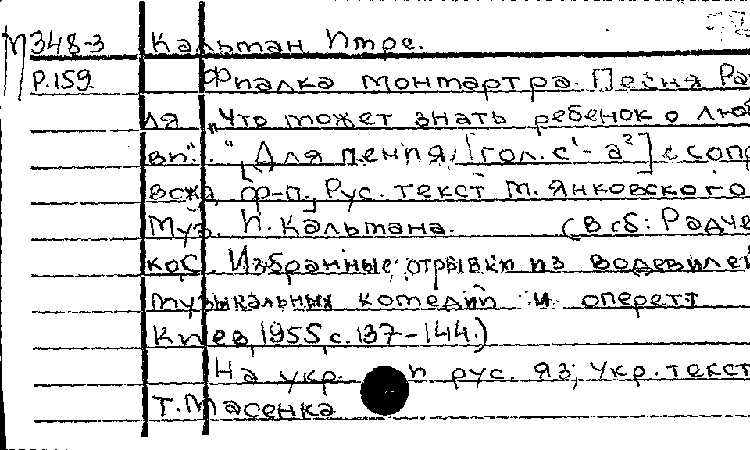 М348-3 Кальман Имре.
Р.159 Фиалка Монмартра. Песня Ра
ля „Что может знать ребенок о лю
ви". [Для пения, [гол. с¹-а²] с сопр
вожд. ф-п., Рус. текст М. Янковского
Муз. И. Кальмана. (В сб: Радче
ко С. Избранные отрывки из водевилей
музыкальных комедий и оперетт
Киев, 1955, с. 137-144.)
На укр. и рус. яз; Укр. текст
Т. Масенка